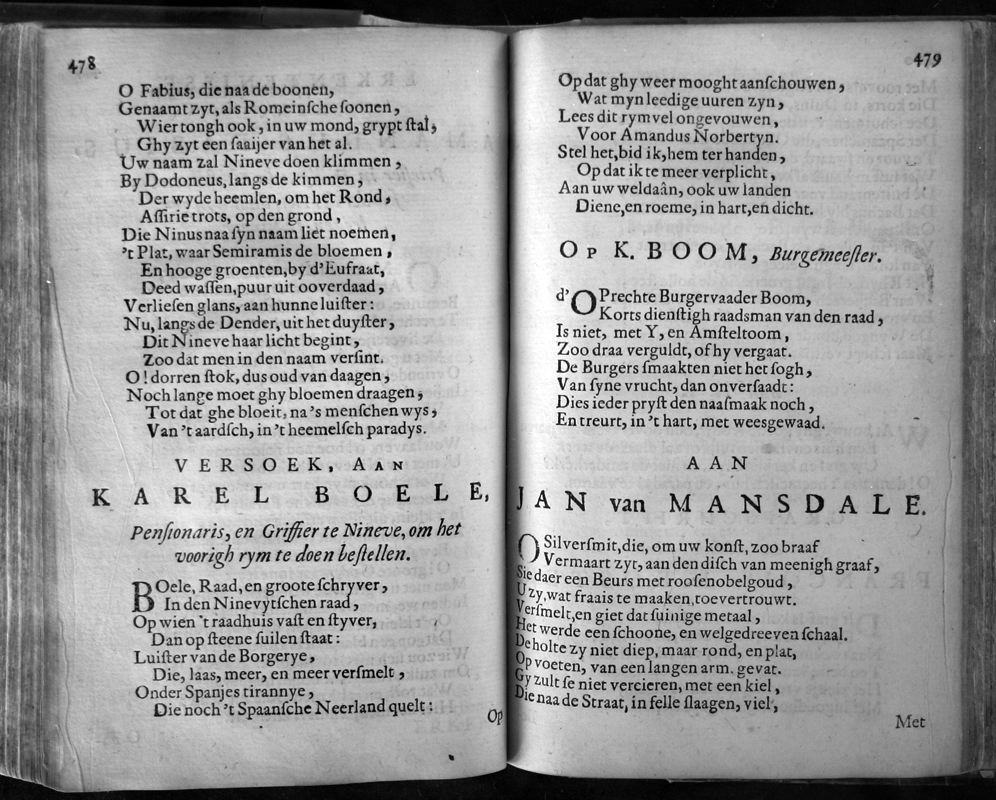 478
O Fabius, die na de boonen,
Genaamt zyt, als Romeinſche ſoonen,
Wier tongh ook, in uw mond, grypt ſtal,
Ghy zyt een ſaaijer van het al.
Uw naam zal Nineve doen klimmen,
By Dodoneus, langs de kimmen,
Der wyde heemlen, om het Rond,
Aſſirie trots, op den grond,
Die Ninus naa ſyn naam liet noemen,
't Plat, waar Semiramis de bloemen,
En hooge groenten, by d'Eufraat,
Deed waſſen, puur uit ooverdaad,
Verlieſen glans, aan hunne luiſter:
Nu, langs de Dender, uit het duyſter,
Dit Nineve haar licht begint,
Zoo dat men in den naam verſint.
O! dorren ſtok, dus oud van daagen,
Noch lange moet ghy bloemen draagen,
Tot dat ghe bloeit, na 's menſchen wys,
Van 't aardſch, in 't heemelſch paradys.
VERSOEK, AAN
KAREL BOELE,
Penſionaris, en Griffier te Nineve, om het
voorigh rym te doen beſtellen.
BOele, Raad, en groote ſchryver,
In den Ninevytſchen raad,
Op wien 't raadhuis vaſt en ſtyver,
Dan op ſteene ſuilen ſtaat:
Luiſter van de Borgerye,
Die, laas, meer, en meer verſmelt,
Onder Spanjes tirannye,
Die noch 't Spaanſche Neerland quelt:
Op
479
Op dat ghy weer mooght aanſchouwen,
Wat myn leedige uuren zyn,
Lees dit rym vel ongevouwen,
Voor Amandus Norbertyn.
Stel het, bid ik, hem ter handen,
Op dat ik te meer verplicht,
Aan uw weldaân, ook uw landen
Diene, en roeme, in hart, en dicht.
OP K. BOOM, Burgemeeſter.
d'OPrechte Burgervaader Boom,
Korts dienſtigh raadsman van den raad,
Is niet, met Y, en Amſteltoom,
Zoo draa verguldt, of hy vergaat.
De Burgers ſmaakten niet het ſogh,
Van ſyne vrucht, dan onverſaadt:
Dies ieder pryſt den naaſmaak noch,
En treurt, in 't hart, met weesgewaad.
AAN
JAN van MANSDALE.
O Silverſmit, die, om uw konſt, zoo braaf
Vermaart zyt, aan den diſch van meenigh graaf,
Sie daer een Beurs met rooſenobelgoud,
U zy, wat fraais te maaken, toevertrouwt.
Verſmelt, en giet dat ſuinige metaal,
Het werde een ſchoone, en welgedreeven ſchaal.
De holte zy niet diep, maar rond, en plat,
Op voeten, van een langen arm gevat.
Gy zult ſe niet vercieren, met een kiel,
Die naa de Straat, in felle ſlaagen, viel,
Met